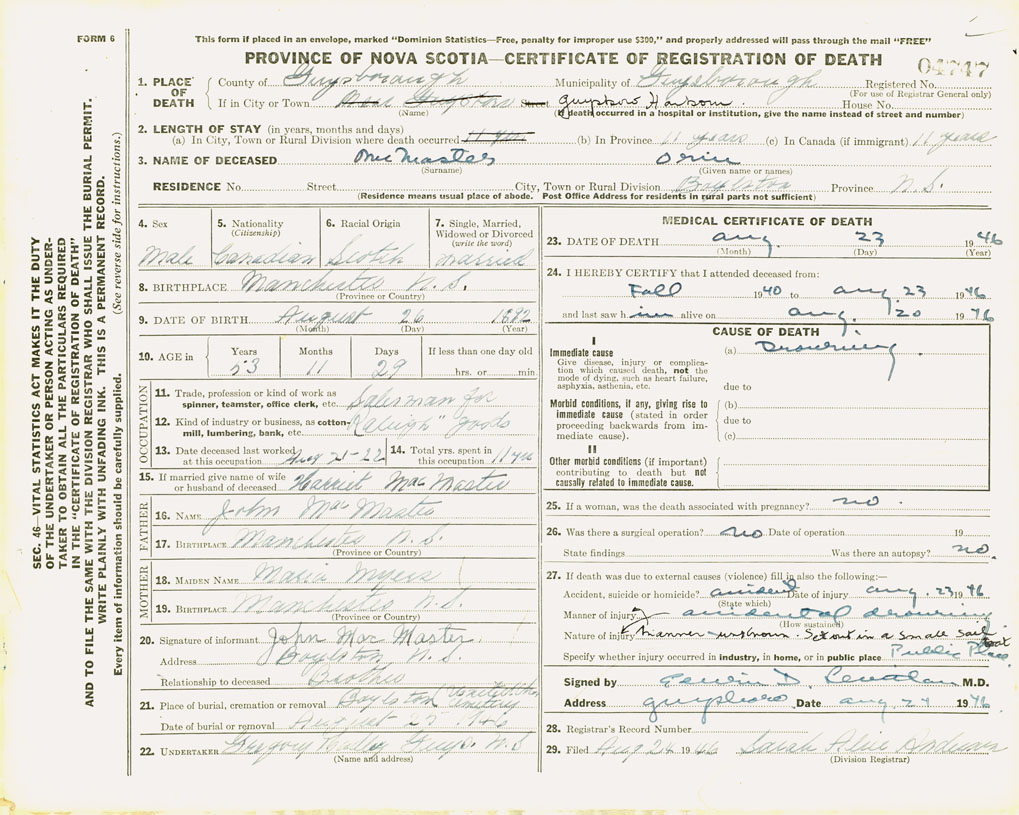 FORM 6
This form if placed in an envelope, marked "Dominion Statistics—Free, penalty for improper use $300," and properly addressed will pass through the mail "FREE"
PROVINCE OF NOVA SCOTIA—CERTIFICATE OF REGISTRATION OF DEATH
04747
1. PLACE OF DEATH
County of Guysborough Municipality of Guysborough Registered No.
(For use of Registrar General only)
If in City or Town Guysboro Harbour House No.
(Name) (If death occurred in a hospital or institution, give the name instead of street and number)
2. LENGTH OF STAY (in years, months and days)
(a) In City, Town or Rural Division where death occurred 11 yrs (b) In Province 11 years (c) In Canada (if immigrant) 11 years
3. NAME OF DECEASED MacMaster Orin
(Surname) (Given name or names)
RESIDENCE No. Street City, Town or Rural Division Boylston Province N.S.
(Residence means usual place of abode. Post Office Address for residents in rural parts not sufficient)
4. Sex 5. Nationality (Citizenship) 6. Racial Origin 7. Single, Married, Widowed or Divorced (write the word)
Male Canadian Scotch married
8. BIRTHPLACE Manchester N.S.
(Province or Country)
9. DATE OF BIRTH August 26 1892
(Month) (Day) (Year)
10. AGE in Years Months Days If less than one day old
53 11 29 hrs. or min.
OCCUPATION
11. Trade, profession or kind of work as spinner, teamster, office clerk, etc. Salesman for
12. Kind of industry or business, as cotton-mill, lumbering, bank, etc. "Raleigh" Goods
13. Date deceased last worked at this occupation Aug 21-22
14. Total yrs. spent in this occupation 11 yrs
15. If married give name of wife or husband of deceased Harriet MacMaster
FATHER
16. NAME John MacMaster
17. BIRTHPLACE Manchester N.S.
(Province or Country)
MOTHER
18. MAIDEN NAME Maria Myers
19. BIRTHPLACE Manchester N.S.
(Province or Country)
20. Signature of informant John MacMaster
Address Boylston N.S.
Relationship to deceased Brother
21. Place of burial, cremation or removal Boylston Cemetery
Date of burial or removal August 25 1946
22. UNDERTAKER Gregory Guys. N.S
(Name and address)
MEDICAL CERTIFICATE OF DEATH
23. DATE OF DEATH aug 23 1946
(Month) (Day) (Year)
24. I HEREBY CERTIFY that I attended deceased from:
Fall 1940 to aug 23 1946
and last saw him alive on aug. 20 1946
CAUSE OF DEATH
I
Immediate cause
Give disease, injury or complication which caused death, not the mode of dying, such as heart failure, asphyxia, asthenia, etc.
(a) Drowning
due to
Morbid conditions, if any, giving rise to immediate cause (stated in order proceeding backwards from immediate cause).
(b)
due to
(c)
II
Other morbid conditions (if important) contributing to death but not causally related to immediate cause.
25. If a woman, was the death associated with pregnancy? no
26. Was there a surgical operation? no Date of operation 19
State findings Was there an autopsy? no.
27. If death was due to external causes (violence) fill in also the following:—
Accident, suicide or homicide? accident Date of injury aug. 23 1946
(State which)
Manner of injury accidental drowning
(How sustained)
Nature of injury Manner—unknown. Set out in a small sail boat
Specify whether injury occurred in industry, in home, or in public place Public Place
Signed by M.D.
Address guysboro Date aug 24 1946
28. Registrar's Record Number
29. Filed Aug 24 1946 Sarah Alice Anderson
(Division Registrar)
SEC. 46—VITAL STATISTICS ACT MAKES IT THE DUTY
OF THE UNDERTAKER OR PERSON ACTING AS UNDER-
TAKER TO OBTAIN ALL THE PARTICULARS REQUIRED
IN THE "CERTIFICATE OF REGISTRATION OF DEATH"
AND TO FILE THE SAME WITH THE DIVISION REGISTRAR WHO SHALL ISSUE THE BURIAL PERMIT.
WRITE PLAINLY WITH UNFADING INK. THIS IS A PERMANENT RECORD.
Every item of information should be carefully supplied. (See reverse side for instructions.)